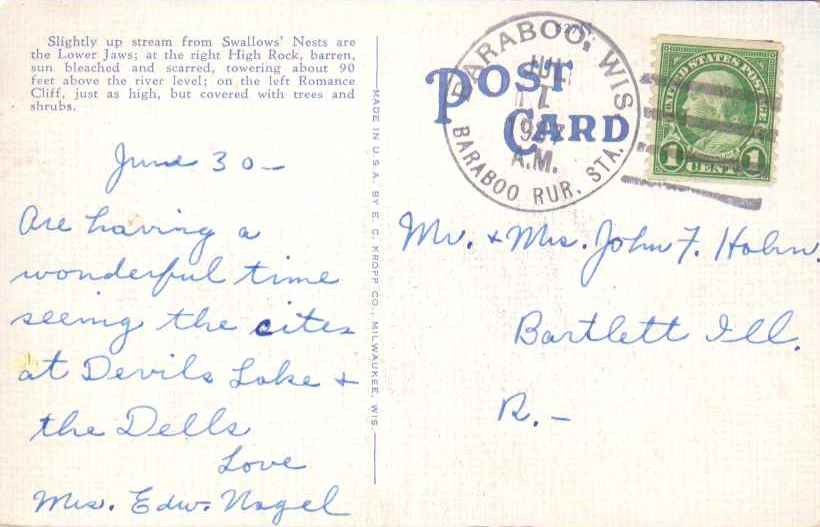 Slightly up stream from Swallows' Nests are
the Lower Jaws; at the right High Rock, barren,
sun bleached and scarred, towering about 90
feet above the river level; on the left Romance
Cliff, just as high, but covered with trees and
shrubs.
June 30-
Are having a
wonderful time
seeing the cites
at Devils Lake +
the Dells
Love
Mrs. Edw. Nagel
MADE IN U.S.A. BY E. C. KROPP CO., MILWAUKEE, WIS.
POST
CARD
BARABOO, WIS.
A.M.
BARABOO RUR. STA.
UNITED STATES POSTAGE
1 CENT 1
Mr. + Mrs. John F. Hahn.
Bartlett Ill.
R. -